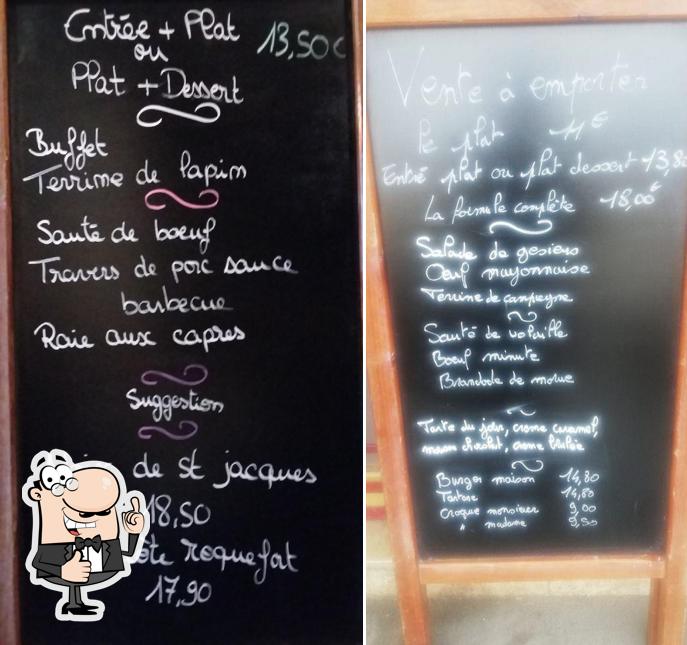 Entrée + Plat 13,50€
ou
Plat + Dessert
Buffet
Terrine de lapin
Sauté de boeuf
Travers de porc sauce
barbecue
Raie aux capres
Suggestion
de St jacques
18,50
roquefort
17,90
Vente à emporter
Le plat 11€
Entré plat ou plat dessert 13,8
La formule complète 18,00€
Salade de gesiers
Oeuf mayonnaise
Terrine de campagne
Sauté de volaille
Boeuf minute
Brandade de morue
Tarte du jour, creme caramel,
creme brulée
Burger maison 14,80
Tartare 14,80
Croque monsieur 9,00
" madame 9,50